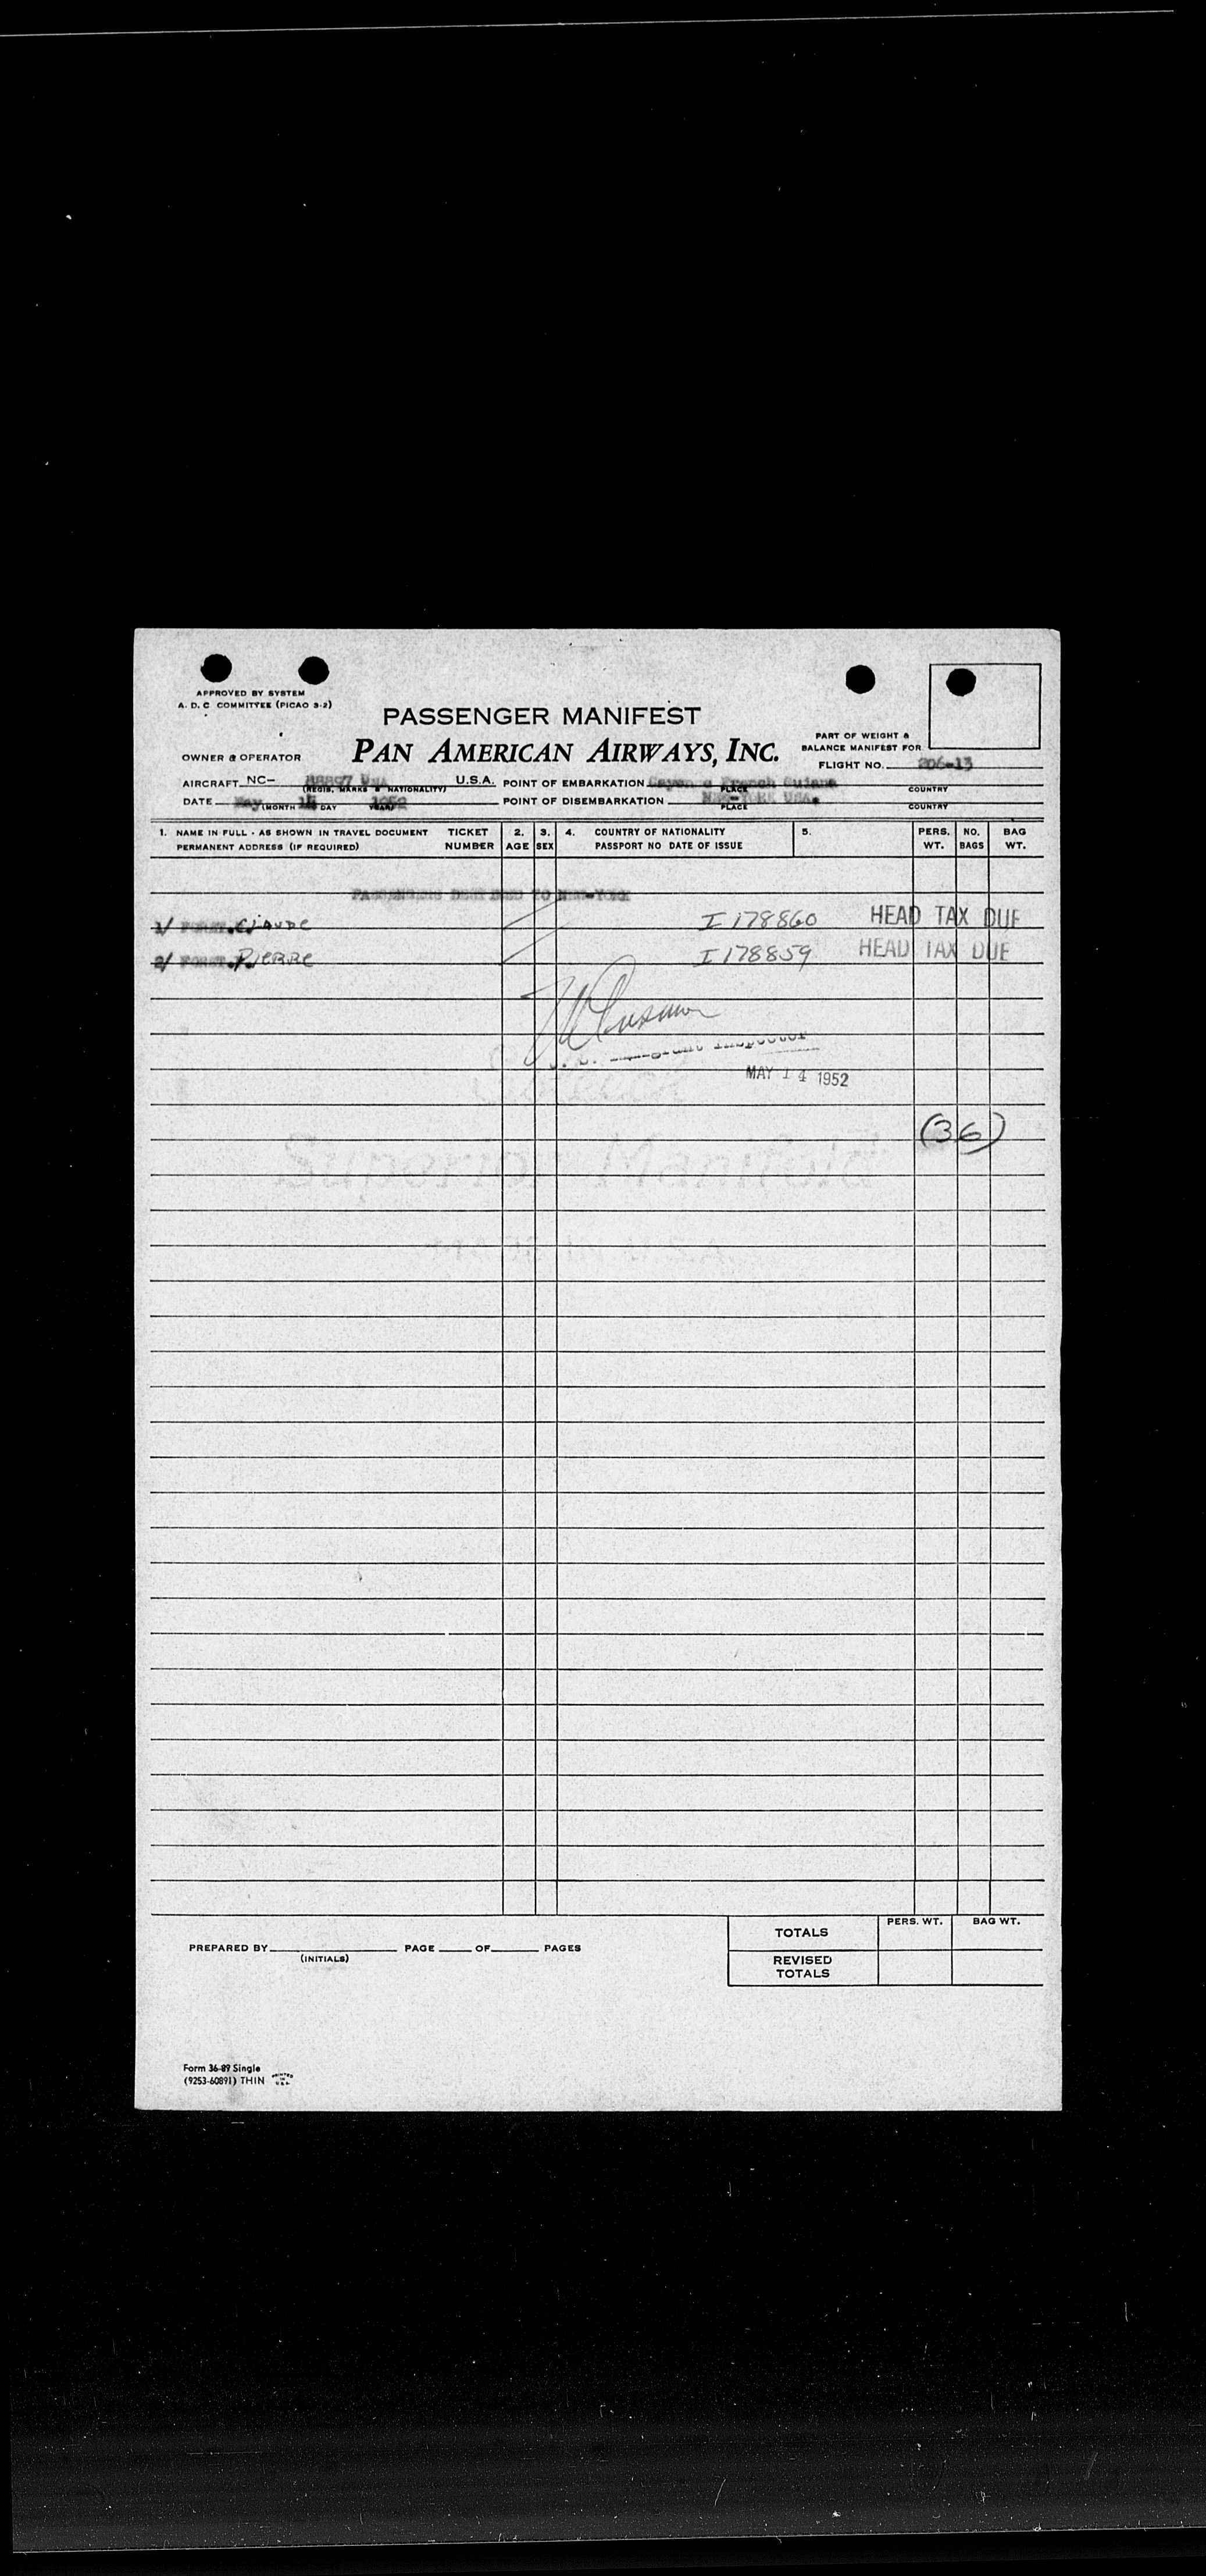 APPROVED BY SYSTEM
A. D. C COMMITTEE (PICAO 3-2)
PASSENGER MANIFEST
PAN AMERICAN AIRWAYS, INC.
PART OF WEIGHT &
BALANCE MANIFEST FOR
OWNER & OPERATOR
FLIGHT NO. 206-13
AIRCRAFT NC- U.S.A. POINT OF EMBARKATION Cayenne French Guiana
(REGIS. MARKS & NATIONALITY) PLACE COUNTRY
DATE May 14 1952 POINT OF DISEMBARKATION NEW-YORK USA.
(MONTH DAY YEAR) PLACE COUNTRY
1. NAME IN FULL - AS SHOWN IN TRAVEL DOCUMENT TICKET 2. 3. 4. COUNTRY OF NATIONALITY 5. PERS. NO. BAG
PERMANENT ADDRESS (IF REQUIRED) NUMBER AGE SEX PASSPORT NO DATE OF ISSUE WT. BAGS WT.
PASSENGERS DESTINED TO NEW-YORK
1/ CLAUDE I 178860 HEAD TAX DUE
2/ PIERRE I 178859 HEAD TAX DUE
Inspector
MAY 14 1952
(36)
PERS. WT. BAG WT.
TOTALS
PREPARED BY PAGE OF PAGES
(INITIALS)
REVISED
TOTALS
Form 36-89 Single
(9253-60891) THIN PRINTED IN U.S.A.